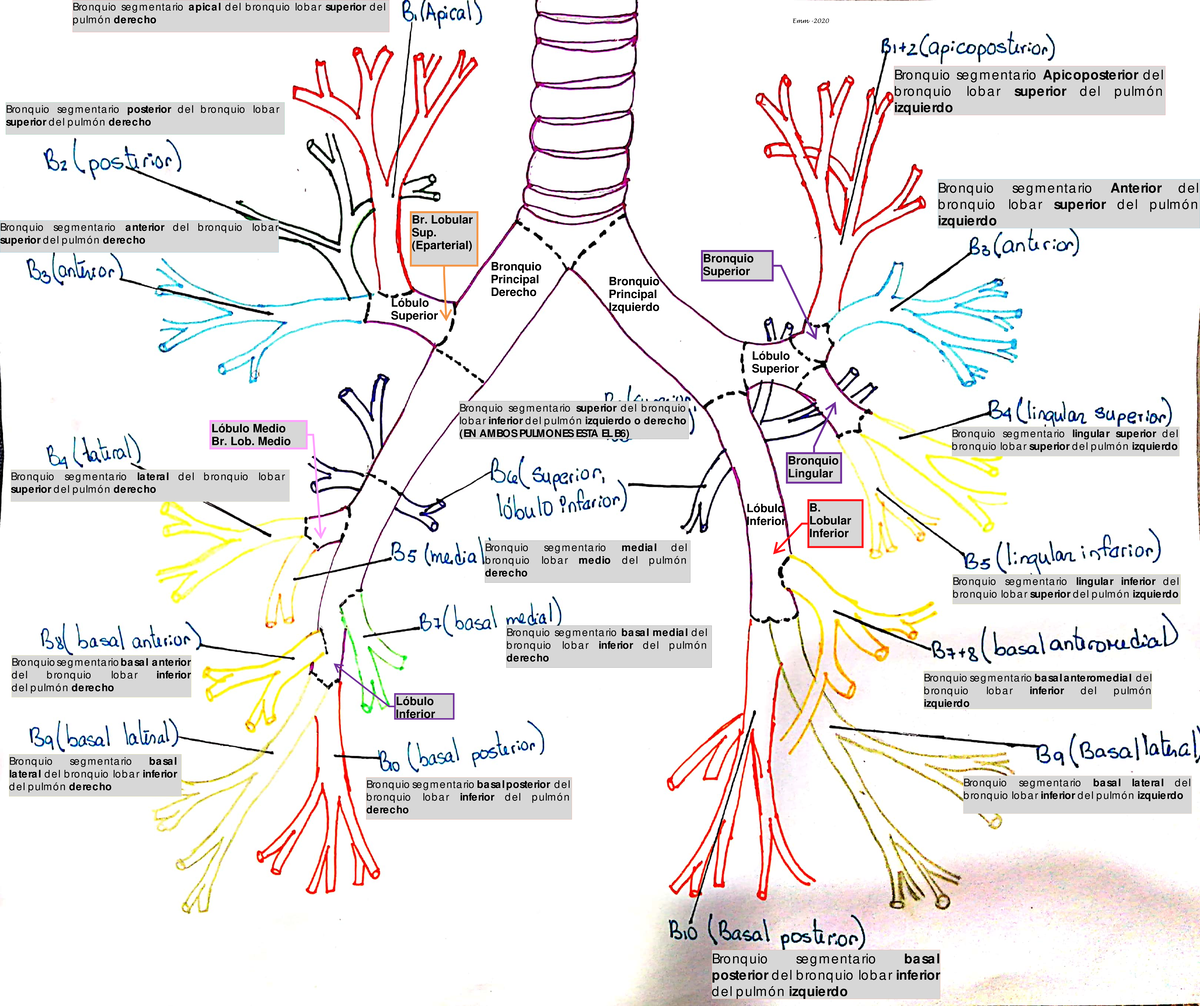 Bronquio segmentario apical del bronquio lobar superior del
pulmón derecho
B1(Apical)
Emm -2020
B1+2 (apicoposterior)
Bronquio segmentario Apicoposterior del
bronquio lobar superior del pulmón
izquierdo
Bronquio segmentario posterior del bronquio lobar
superior del pulmón derecho
B2 (posterior)
Bronquio segmentario Anterior del
bronquio lobar superior del pulmón
izquierdo
B3 (anterior)
Bronquio segmentario anterior del bronquio lobar
superior del pulmón derecho
B3 (anterior)
Br. Lobular
Sup.
(Eparterial)
Bronquio
Principal
Derecho
Bronquio
Principal
Izquierdo
Bronquio
Superior
Lóbulo
Superior
Lóbulo
Superior
Bronquio segmentario superior del bronquio
lobar inferior del pulmón izquierdo o derecho
(EN AMBOS PULMONES ESTA EL B6)
B4 (lingular superior)
Bronquio segmentario lingular superior del
bronquio lobar superior del pulmón izquierdo
Lóbulo Medio
Br. Lob. Medio
B4 (lateral)
Bronquio segmentario lateral del bronquio lobar
superior del pulmón derecho
Bronquio
Lingular
B6 (superior,
lóbulo inferior)
Lóbulo
Inferior
B.
Lobular
Inferior
B5 (medial
Bronquio segmentario medial del
bronquio lobar medio del pulmón
derecho
B5 (lingular inferior)
Bronquio segmentario lingular inferior del
bronquio lobar superior del pulmón izquierdo
B7 (basal medial)
Bronquio segmentario basal medial del
bronquio lobar inferior del pulmón
derecho
B8 (basal anterior)
Bronquio segmentario basal anterior
del bronquio lobar inferior
del pulmón derecho
B7+8 (basal anteromedial)
Bronquio segmentario basal anteromedial del
bronquio lobar inferior del pulmón
izquierdo
Lóbulo
Inferior
B9 (basal lateral)
Bronquio segmentario basal
lateral del bronquio lobar inferior
del pulmón derecho
B10 (basal posterior)
Bronquio segmentario basal posterior del
bronquio lobar inferior del pulmón
derecho
B9 (Basal lateral)
Bronquio segmentario basal lateral del
bronquio lobar inferior del pulmón izquierdo
B10 (Basal posterior)
Bronquio segmentario basal
posterior del bronquio lobar inferior
del pulmón izquierdo